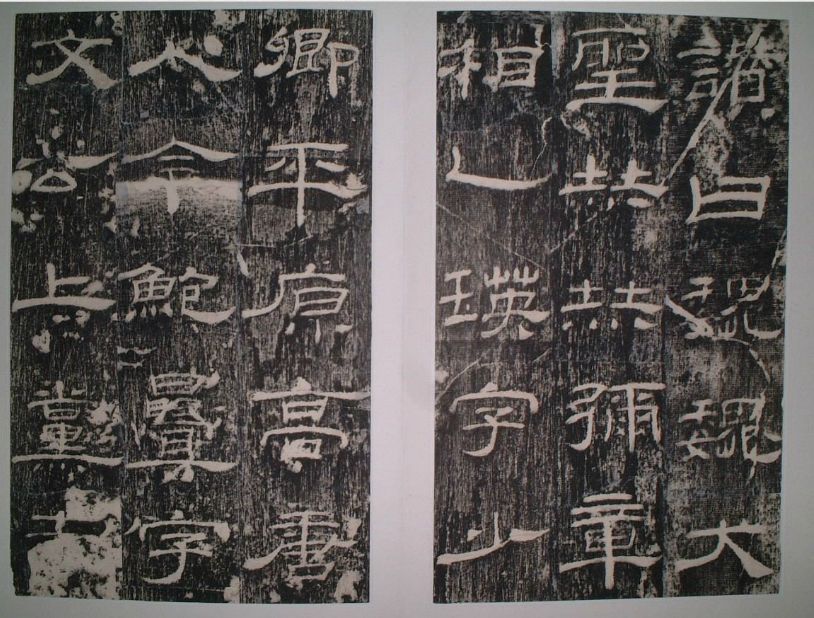 讃曰巍巍大
聖赫赫彌章
相乙瑛字少
卿平原高唐
人令鮑疊字
文公上黨屯